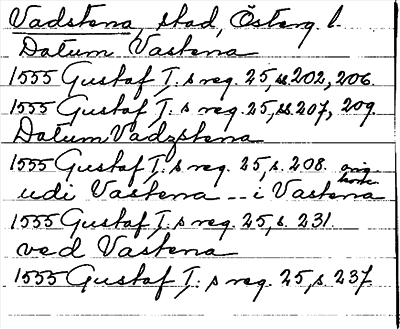 Vadstena, stad, Österg. l.
Datum Vastena
1555 Gustaf I:s reg. 25, ss 202, 206.
1555 Gustaf I:s reg. 25, ss 207, 209.
Datum Vadzstena
1555 Gustaf I:s reg. 25, s. 208. orig.
udi Vastena -- i Vastena
1555 Gustaf I:s reg. 25, s. 231.
ved Vastena
1555 Gustaf I:s reg. 25, s. 237